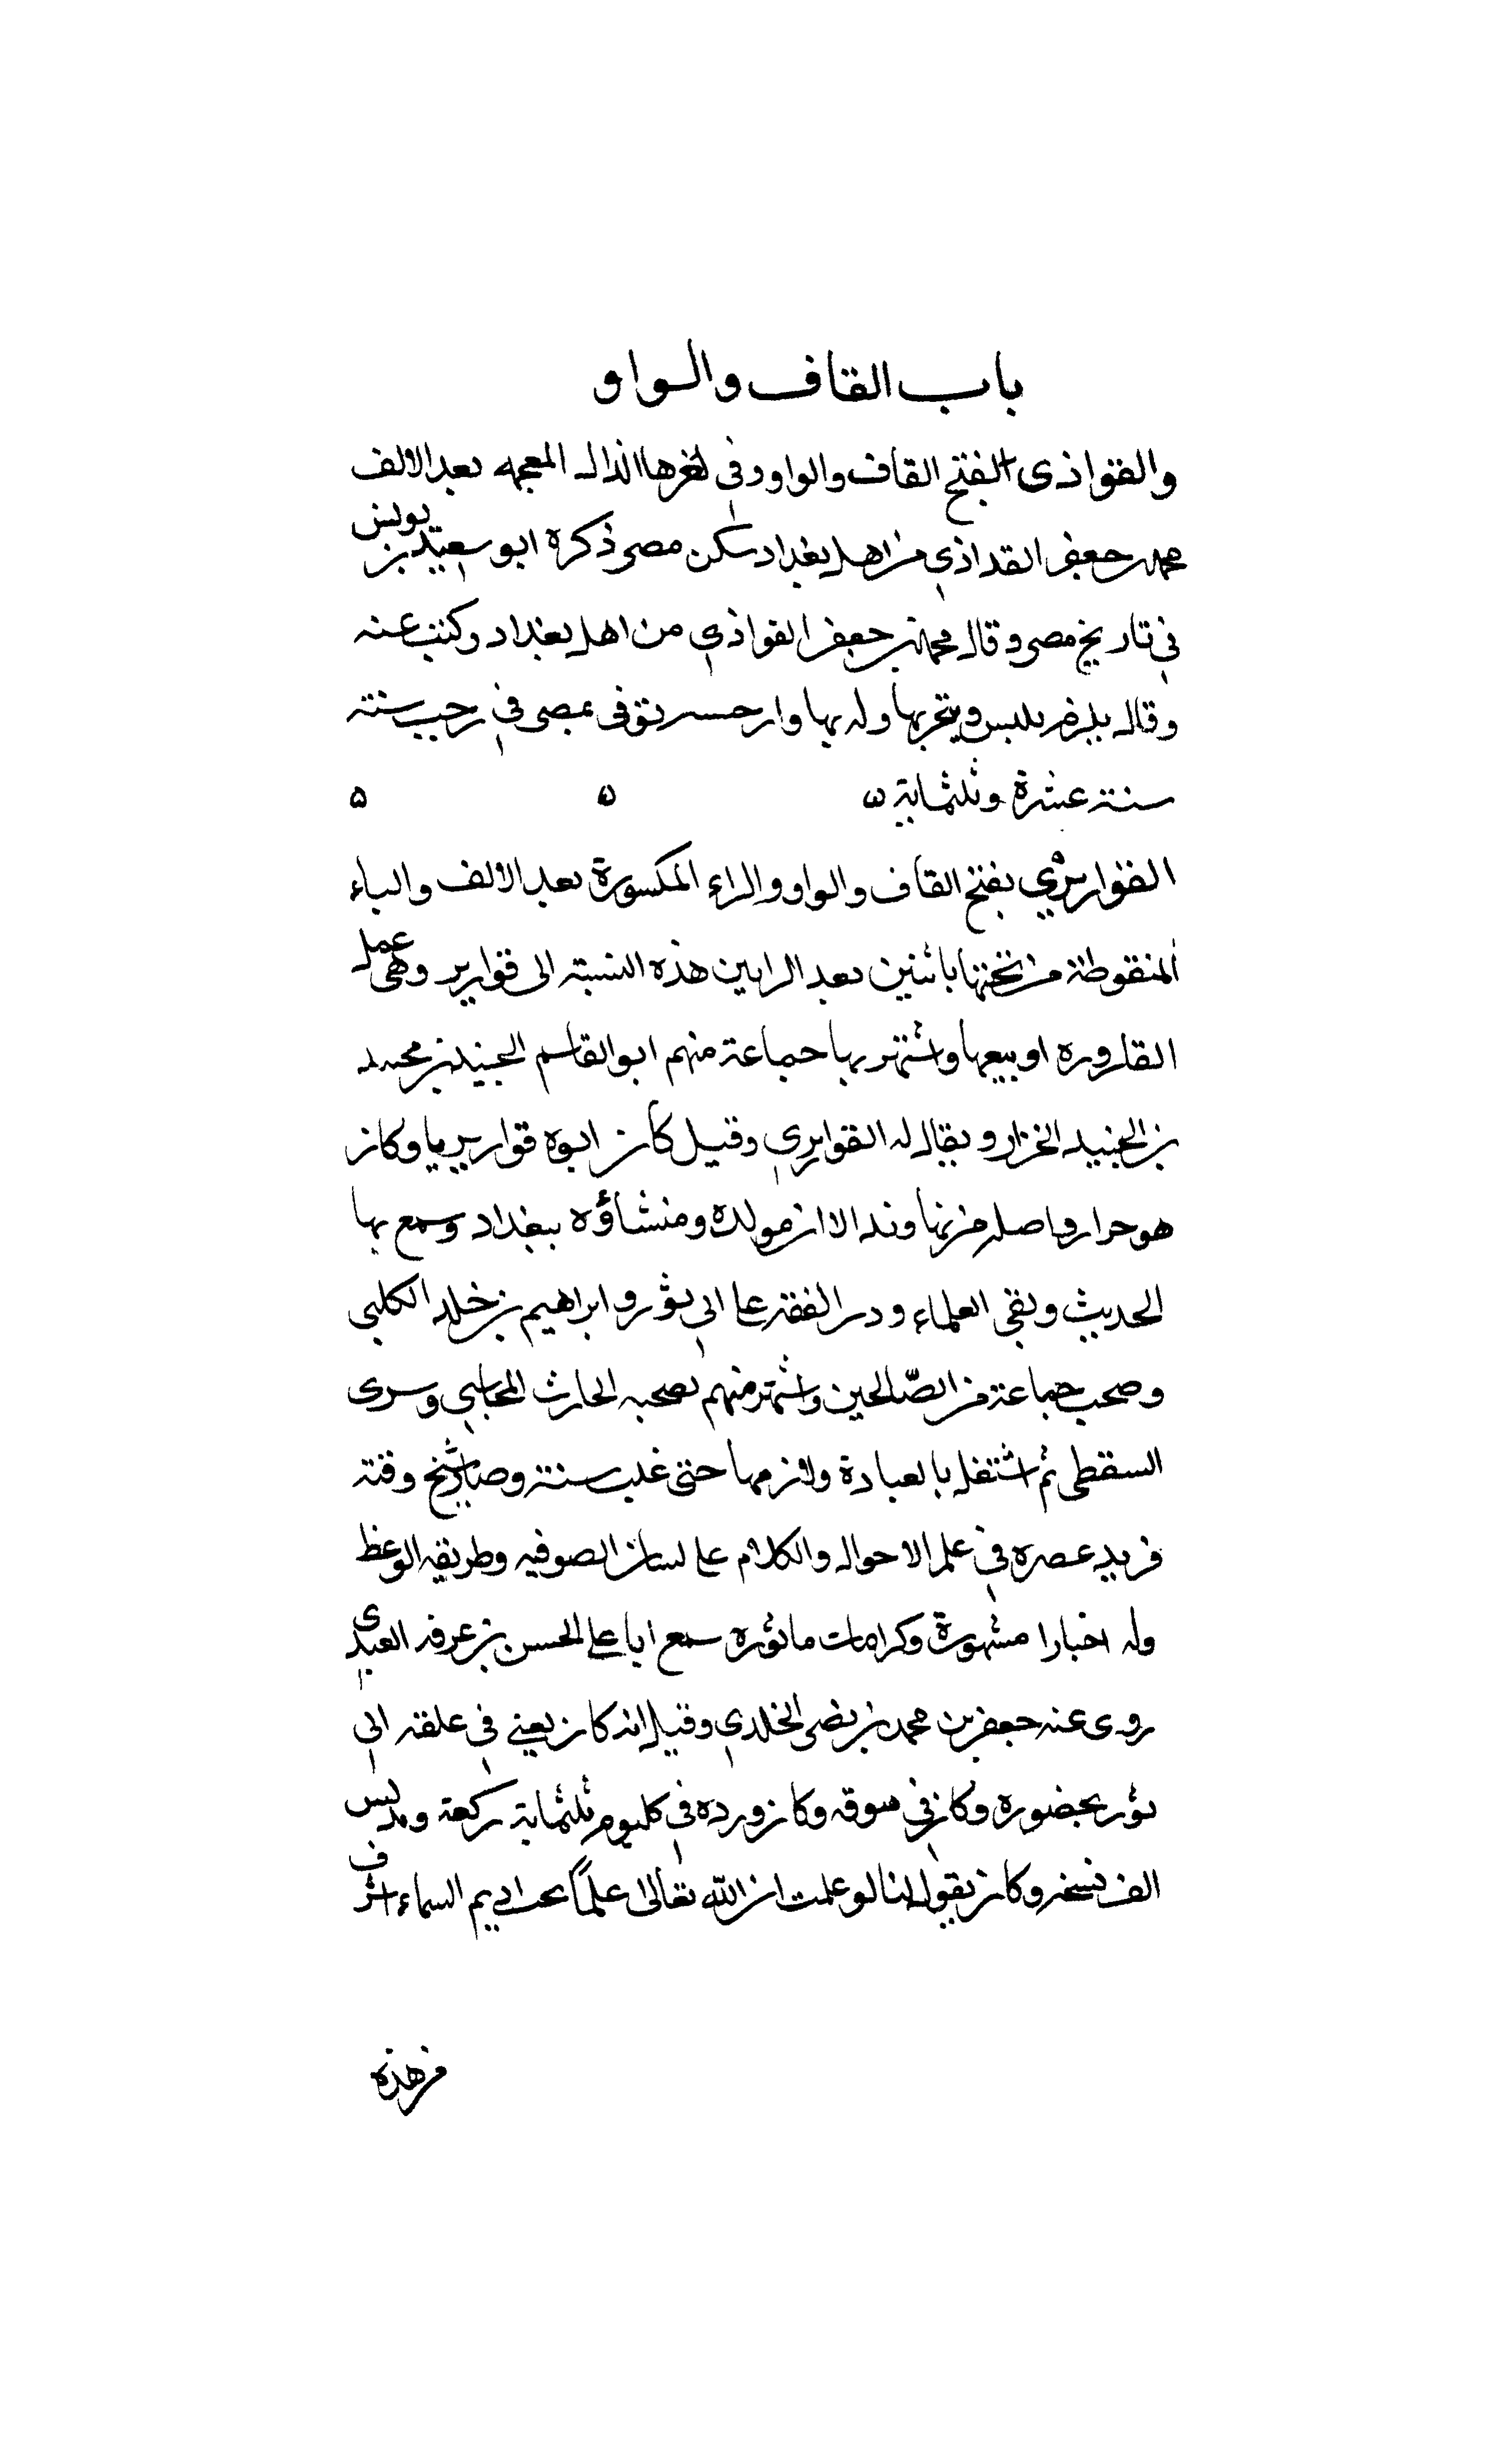 باب القاف والواو
والقواذى بفتح القاف والواو وفي اخرها الذال المعجمه بعد الالف
محمد بن جعفر القداذي من اهل بغداد سكن مصر ذكره ابو سعيد بن يونس
في تاريخ مصر وقال محمد بن جعفر القواذي من اهل بغداد وكتب عنه
وقال بلزم بلبس ويتجر بها وله بها دار حسنه توفى بمصر في رجب سنته
سنته عشرة وثلثماية ۵ ۵ ۵
القواريرى بفتح القاف والواو والراء المكسورة بعد الالف والياء
المنقوطة من تحتها باثنين بعد الرايين هذه النسبته الى قوارير وهى عمل
القاروره او بيعها واشتهر بها جماعة منهم ابو القاسم الجنيد بن محمد
بن الجنيد الخزاز ويقال له القواريري وقيل كان ابوه قواريريا وكان
هو خزاز واصله من نهاوند الا ان مولده ومنشاؤه ببغداد وسمع بها
الحديث ولقى العلماء ودرس الفقه على ابي ثور و ابراهيم بن خلد الكلبى
وصحب جماعة من الصّالحين واشتهر منهم بصحبه الحارث المحاسبي وسرى
السقطى ثم اشتغل بالعبادة ولازمها حتى غلب سنته وصار شيخ وقته
فريد عصره في علم الاحوال والكلام على لسان الصوفيه وطريقه الوعظ
وله اخبارا مشهورة وكرامات ماثوره سمع ابا على الحسن بن عرفه العبدى
روى عنه جعفر بن محمد بن نصر الخلدي وقيل انه كان يفتي في حلقته ابي
ثور بحضوره وكان في سوقه وكان ورده في كل يوم ثلثماية ركعة و
الف تسبيحه وكان يقول لنا لو علمت ان الله تعالى علماً تحت اديم السماء اشرف
من هذه